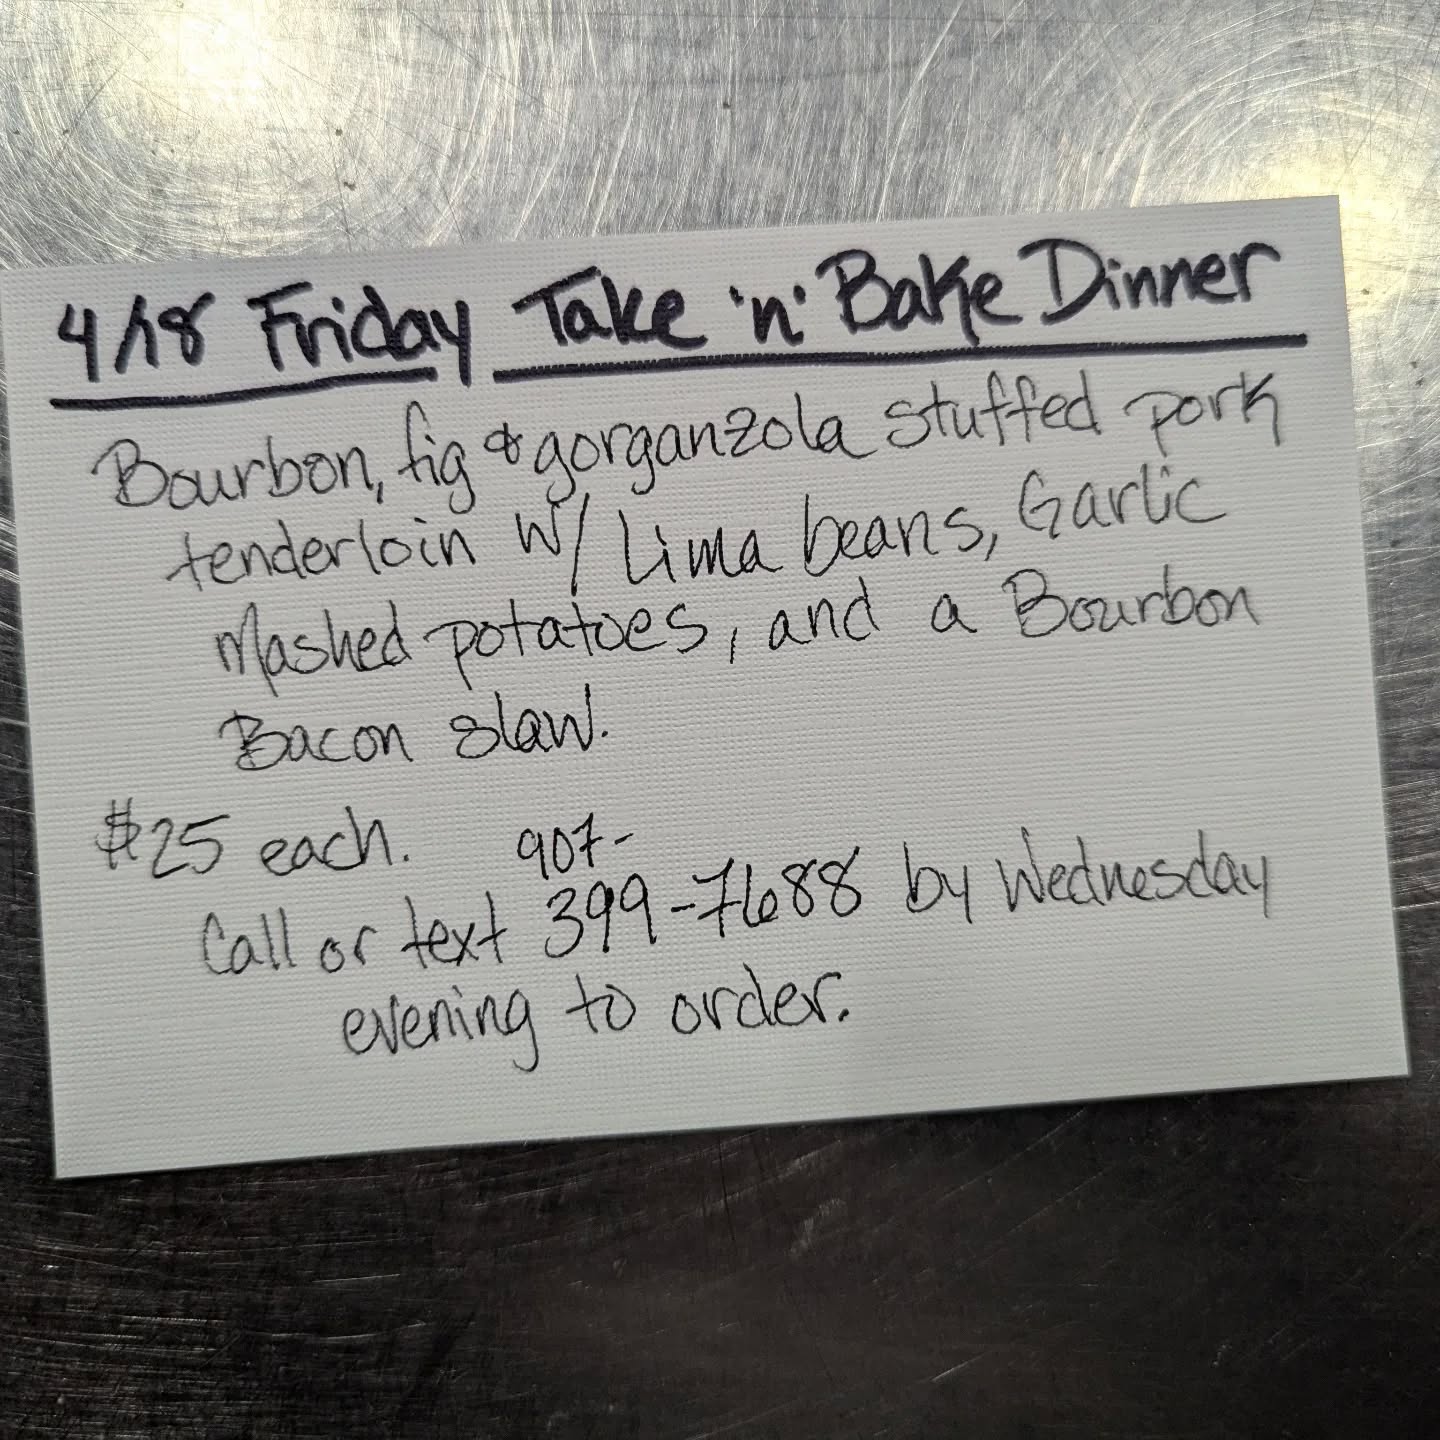 4/18 Friday Take 'n' Bake Dinner
Bourbon, fig & gorganzola stuffed pork
tenderloin w/ Lima beans, Garlic
Mashed potatoes, and a Bourbon
Bacon slaw.
$25 each.
907-
Call or text 399-7688 by Wednesday
evening to order.